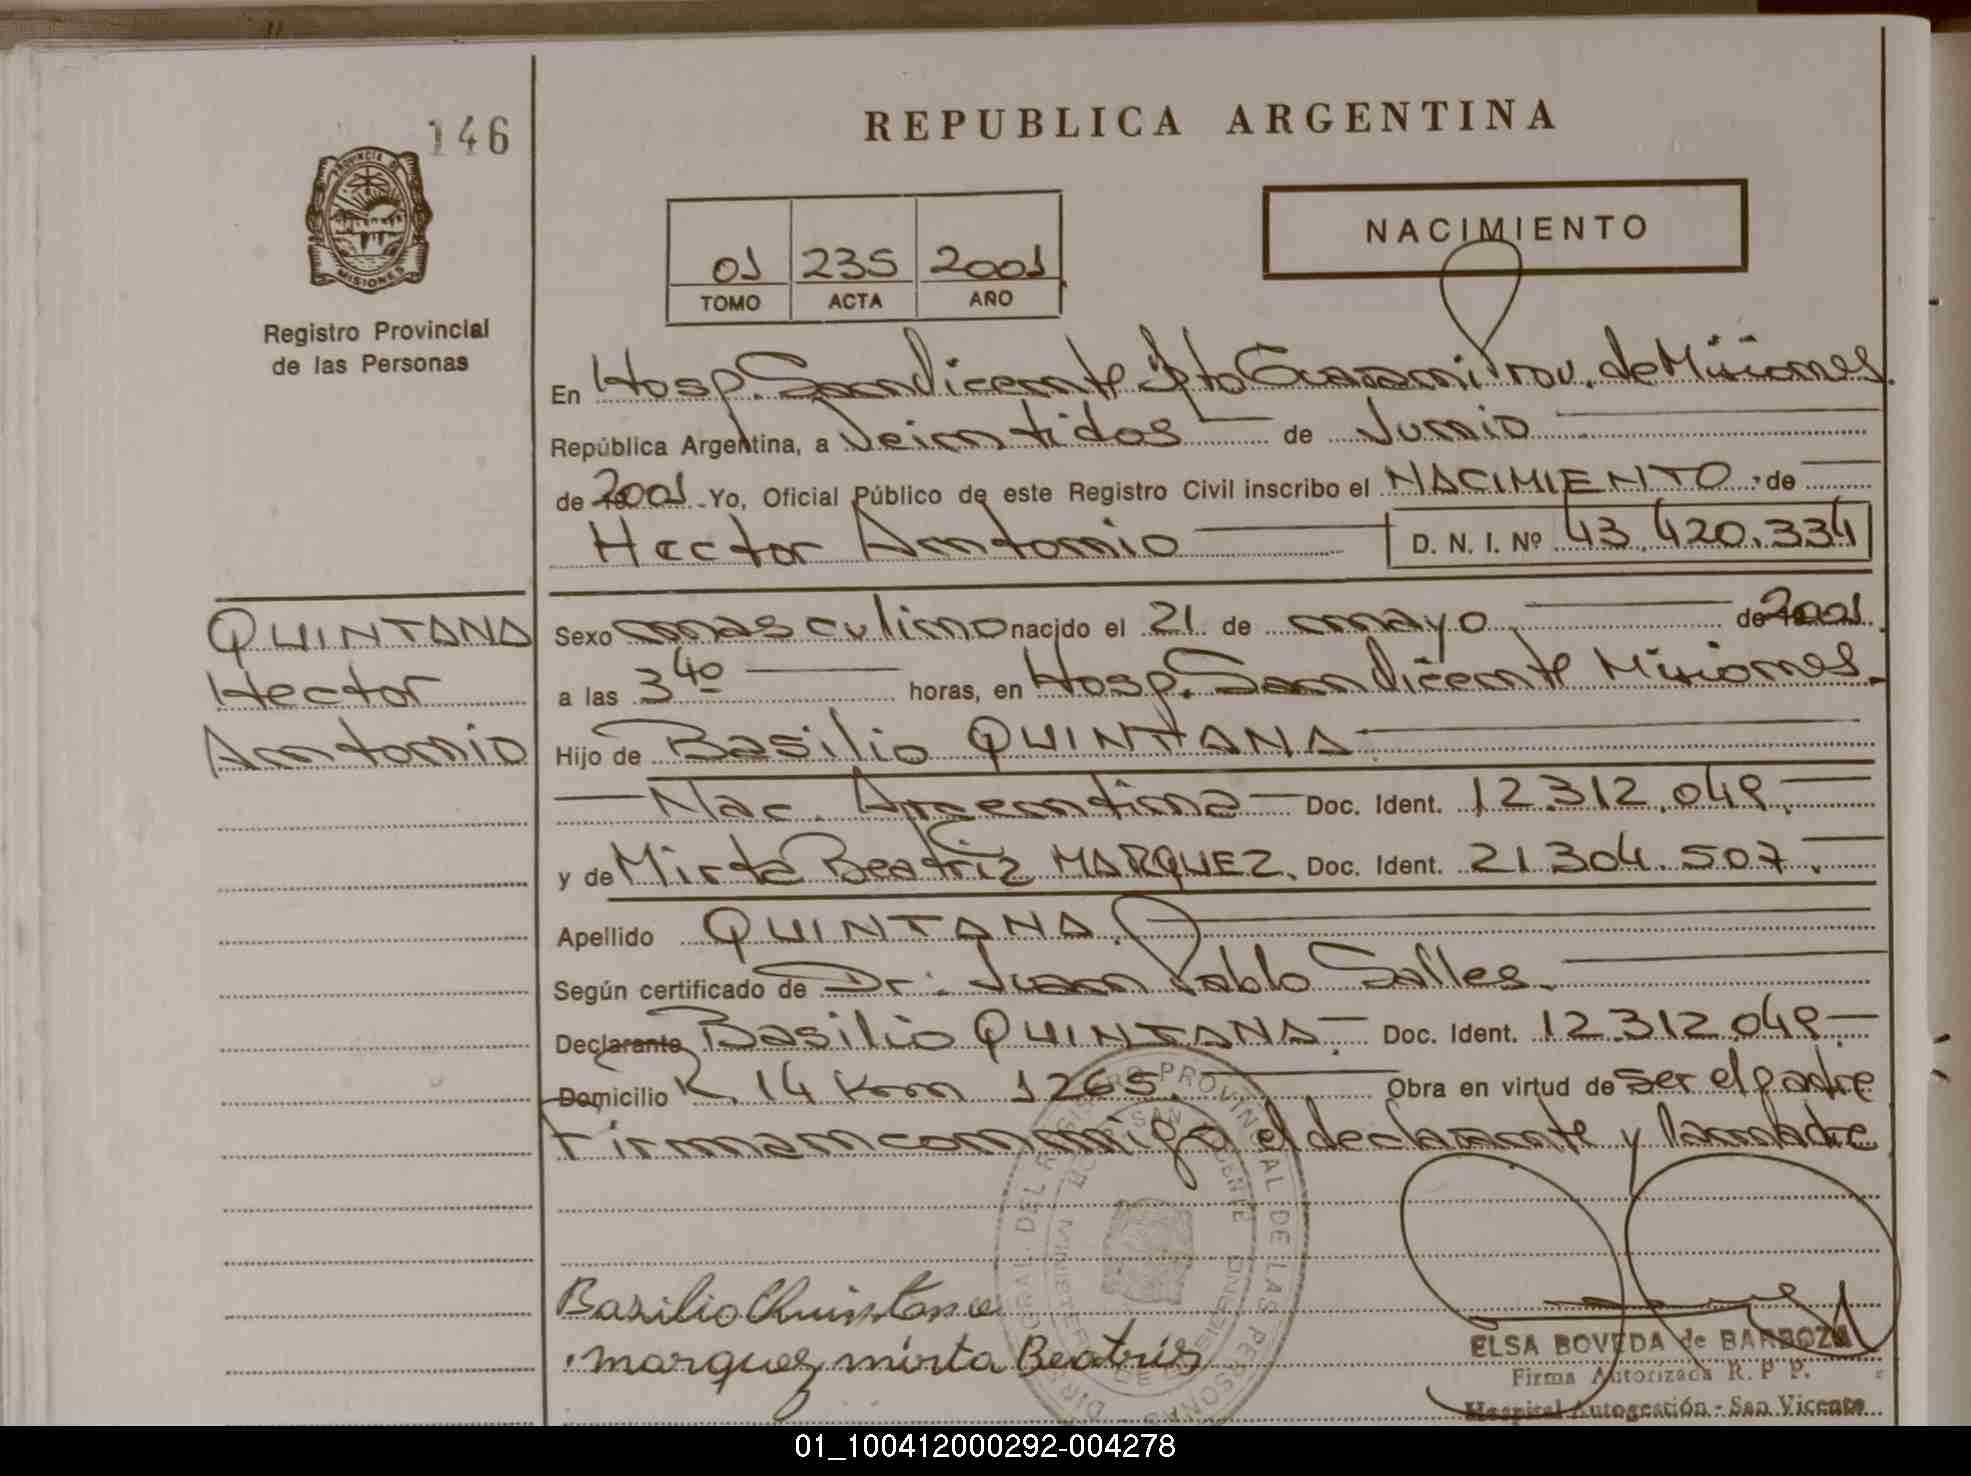 146
REPUBLICA ARGENTINA
PROVINCIA DE
MISIONES
Registro Provincial
de las Personas
01 235 2001
TOMO ACTA AÑO
NACIMIENTO
En Hosp. San Vicente Dpto Guarani Prov. de Misiones.
República Argentina, a Veintidos de Junio
de 2001 Yo, Oficial Público de este Registro Civil inscribo el NACIMIENTO de
Hector Antonio D. N. I. Nº 43.420.334
QUINTANA
Hector
Antonio
Sexo masculino nacido el 21 de mayo de 2001.
a las 3 40 horas, en Hosp. San Vicente Misiones.
Hijo de Basilio QUINTANA
Nac. Argentina Doc. Ident. 12.312.049.
y de Mirta Beatriz MARQUEZ. Doc. Ident. 21.304.507.
Apellido QUINTANA.
Según certificado de Dr. Juan Pablo Salles.
Declarante Basilio QUINTANA. Doc. Ident. 12.312.049
Domicilio R. 14 Km 1265. Obra en virtud de ser el padre
Firman conmigo el declarante y la madre
Basilio Quintana
Marquez mirta Beatriz
ELSA BOVEDA de BARBOZA
Firma Autorizada R. P P.
Hospital Autogestión - San Vicente
01_100412000292-004278